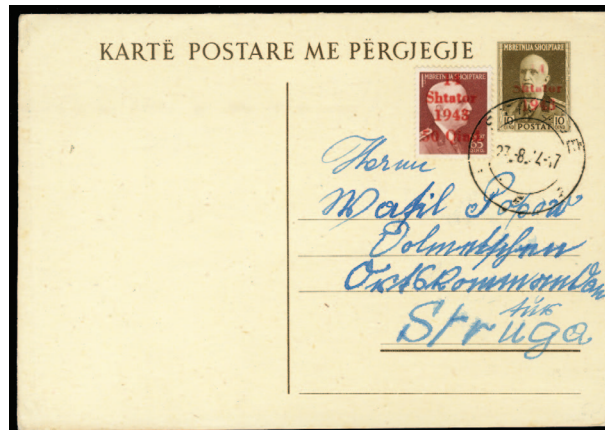 KARTË POSTARE ME PËRGJEGJE
MBRETNIJA SHQIPTARE
Shtator
1943
10 POSTAT 10
MBRETNIJA SHQIPTARE
14
Shtator
1943
Herrn
Wasil Popow
Dolmetscher
Ortskommandan
tur
Struga